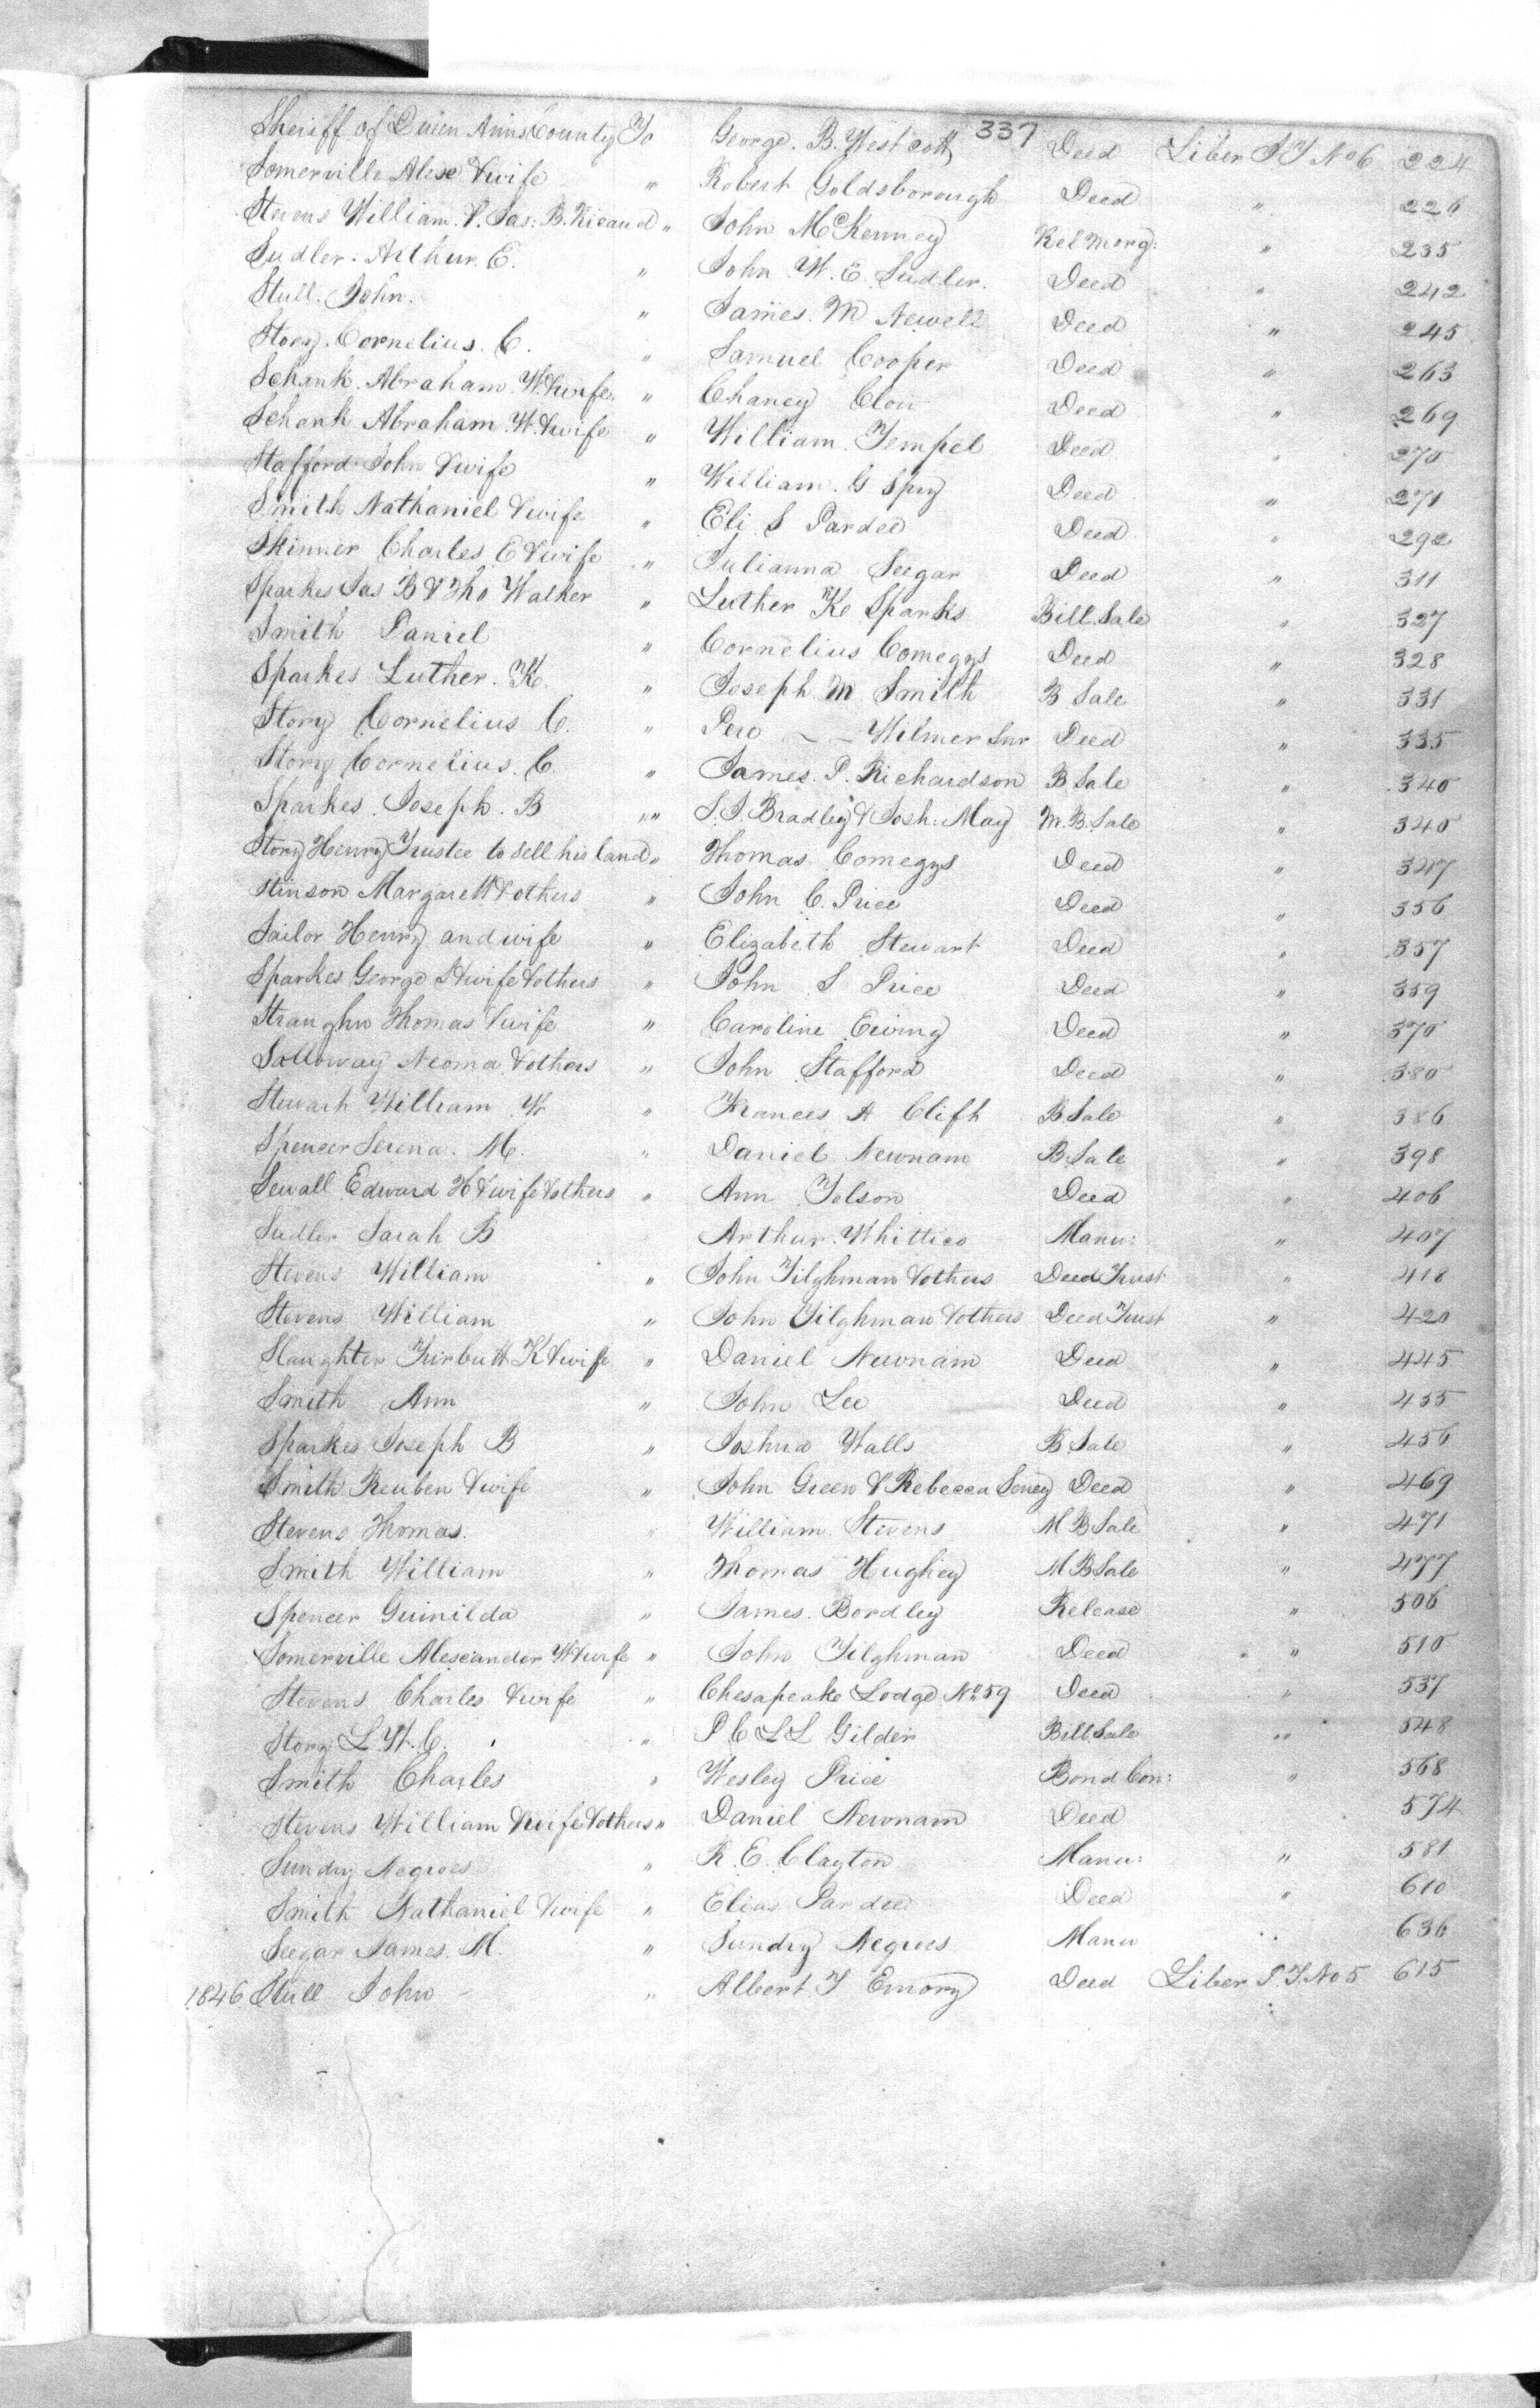 337
Sheriff of Queen Anns County To George. B. Westcott Deed Liber JT No 6 224
Somerville Alex & wife " Robert Goldsborough Deed " 226
Stevens William. & Jas: B. Ricaud " John McKenney Rel Morg: " 235
Sudler. Arthur. E. " John W. E. Sudler. Deed " 242
Stull. John. " James. M Newell Deed " 245
Story. Cornelius. C. " Samuel Cooper Deed " 263
Schank. Abraham. W. & wife. " Chaney Clow Deed " 269
Schank Abraham. W. & wife " William. Tempel Deed " 270
Stafford John & wife " William. G Spry Deed " 271
Smith Nathaniel & wife " Eli S Pardee Deed " 292
Skinner Charles E & wife " Julianna Seegar Deed " 311
Sparkes Jas B & Tho Walker " Luther K Sparks Bill. Sale " 327
Smith Daniel " Cornelius Comegys Deed " 328
Sparkes Luther. K. " Joseph. M. Smith B Sale " 331
Story Cornelius C. " Pere - - Wilmer Snr Deed " 335
Story Cornelius. C. " James. P. Richardson B Sale " 340
Sparkes. Joseph. B "" S. J. Bradley & Josh: May M. B. Sale " 340
Story Henry Trustee to sell his land " Thomas Comegys Deed " 347
Stinson Margarett & others " John C. Price Deed " 356
Sailor Henry and wife " Elizabeth Stewart Deed " 357
Sparkes George S & wife & others " John S Price Deed " 359
Straughn Thomas & wife " Caroline Ewing Deed " 370
Solloway Neoma & others " John Stafford Deed " 380
Stewart William W " Frances A Clift B Sale " 386
Spencer Serena. M. " Daniel Newnam B Sale " 398
Sewall Edward H & wife & others " Ann Tolson Deed " 406
Sudler Sarah B Arthur. Whittico Manu: " 407
Stevens William " John Tilghman & others Deed Trust " 418
Stevens William " John Tilghman & others Deed Trust " 420
Slaughter Turbutt K & wife " Daniel Newnam Deed " 445
Smith Ann " John Lee Deed " 455
Sparkes Joseph B " Joshua Walls B Sale " 456
Smith Reuben & wife " John Green & Rebecca Seney Deed " 469
Stevens Thomas. " William Stevens M B Sale " 471
Smith William " Thomas Hughey M B Sale " 477
Spencer Guinilda " James. Bordley Release " 506
Somerville Alexander W & wife " John Tilghman Deed " 510
Stevens Charles & wife " Chesapeake Lodge No 59 Deed " 537
Story L. W. C. " P C L L Gilder Bill Sale " 548
Smith Charles " Wesley Price Bond Con: " 568
Stevens William & wife & others " Daniel Newnam Deed 574
Sundry Negroes " R. E. Clayton Manu: " 581
Smith Nathaniel & wife " Elias Pardee Deed " 610
Seegar James. M. " Sundry Negroes Manu " 636
1846 Stull John " Albert. T Emory Deed Liber J. T. No 5 615